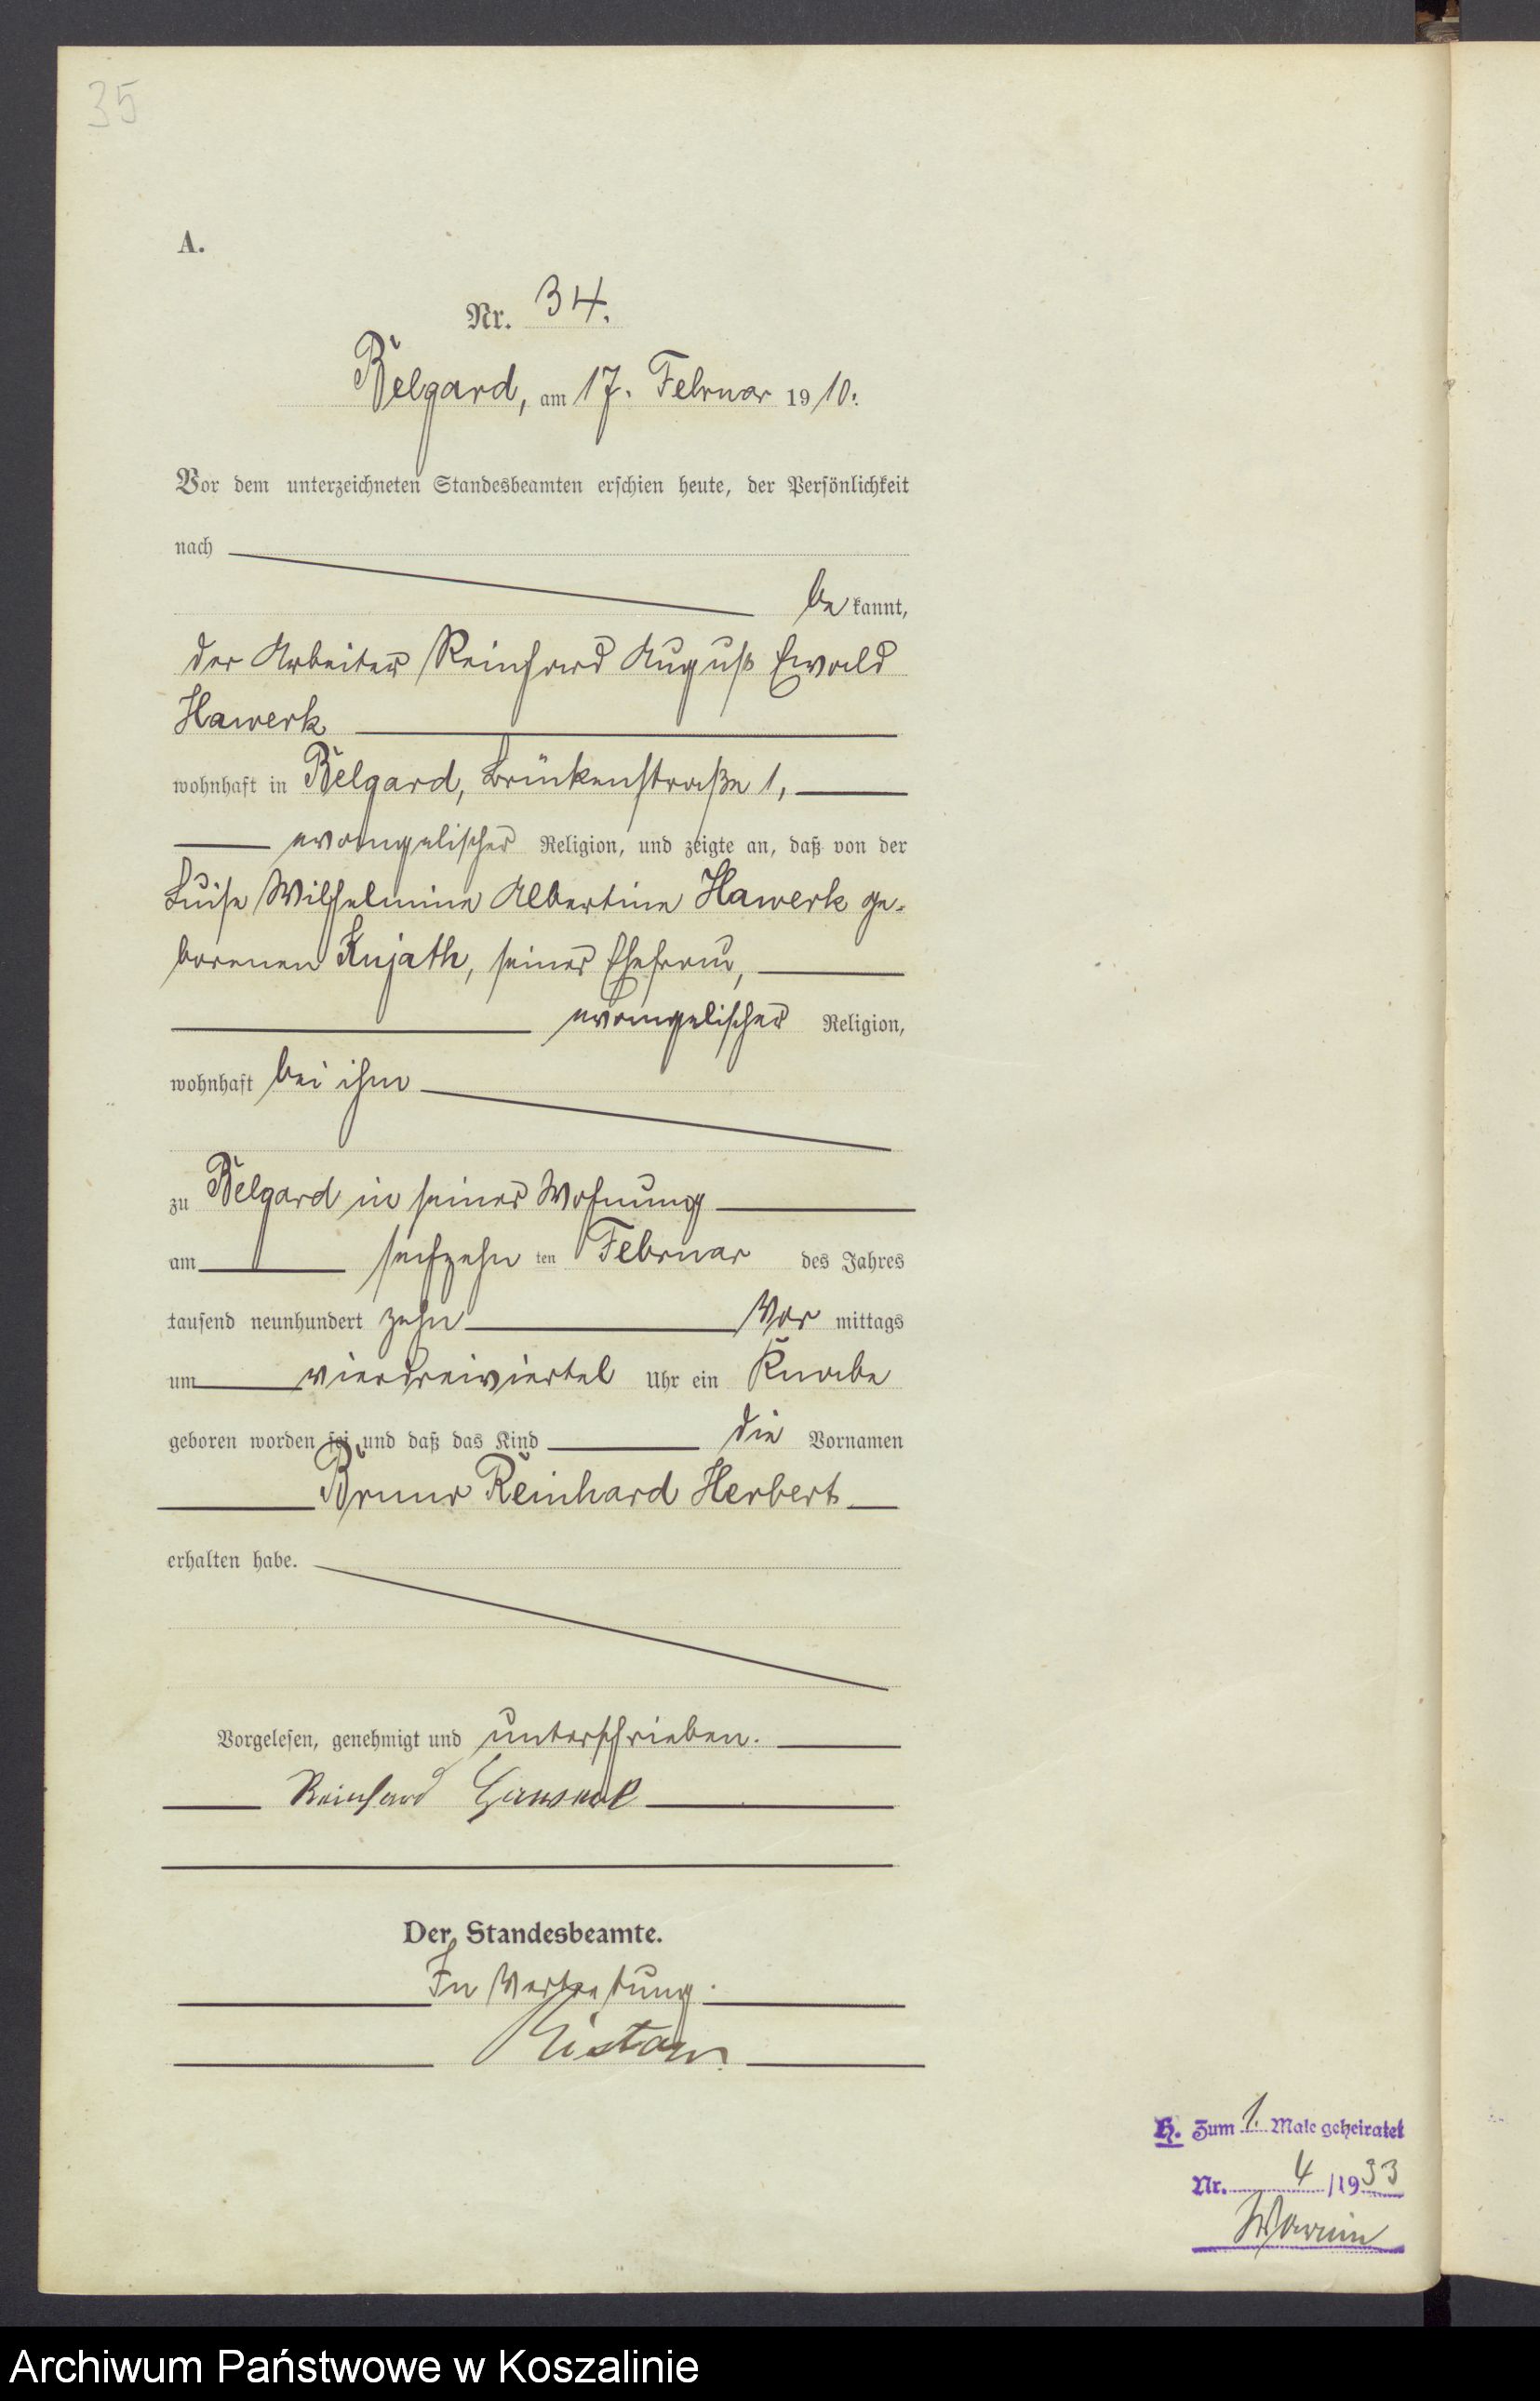 35
A.
Nr. 34.
Belgard, am 17. Februar 1910.
Vor dem unterzeichneten Standesbeamten erschien heute, der Persönlichkeit
nach
be kannt,
der Arbeiter Reinhard August Ewald
Hawerk
wohnhaft in Belgard, Brückenstraße 1,
evangelischer Religion, und zeigte an, daß von der
Luise Wilhelmine Albertine Hawerk ge-
borenen Kujath, seiner Ehefrau,
evangelischer Religion,
wohnhaft bei ihm
zu Belgard in seiner Wohnung
am sechzehn ten Februar des Jahres
tausend neunhundert zehn Vor mittags
um vierdreiviertel Uhr ein Knabe
geboren worden sei und daß das Kind die Vornamen
Bruno Reinhard Herbert
erhalten habe.
Vorgelesen, genehmigt und unterschrieben.
Reinhard Hawerk
Der Standesbeamte.
In Vertretung.
Ristow.
H. Zum 1. Male geheiratet
Nr. 4 /1933
Warnin
Archiwum Państwowe w Koszalinie